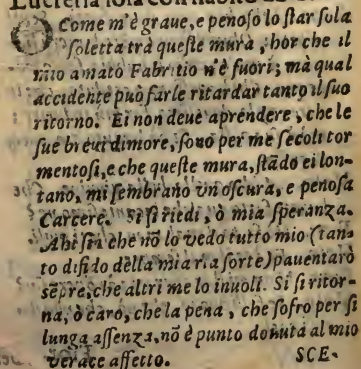 Lucretia sola con habito
O Come m'è graue, e penoso lo star sola
soletta trà queste mura, hor che il
mio amato Fabritio n'è fuori; mà qual
accidente può farle ritardar tanto il suo
ritorno. Ei non deuè aprendere, che le
sue breui dimore, sono per me secoli tor
mentosi, e che queste mura, stãdo ei lon-
tano, mi sembrano vn oscura, e penosa
Carcere. Sì sì riedi, ò mia speranza.
Ahi sin che nõ lo vedo tutto mio (tan-
to difido della mia ria sorte) pauentarò
sẽpre, che altri me lo inuoli. Sì sì ritor-
na, ò caro, che la pena, che sofro per sì
lunga assenza, nõ è punto douuta al mio
verace affetto.
SCE-